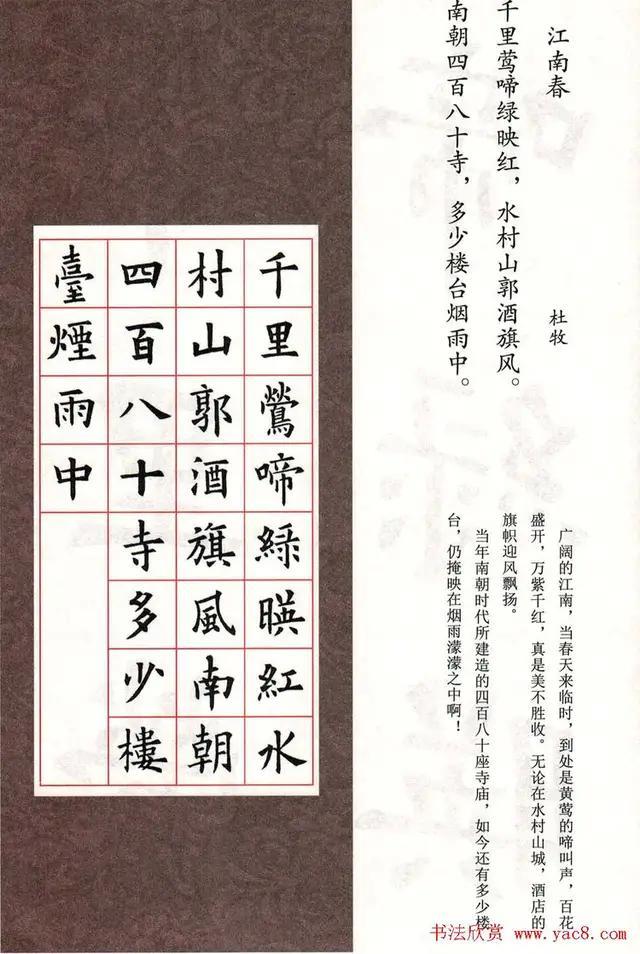 江南春
杜牧
千里莺啼绿映红，水村山郭酒旗风。
南朝四百八十寺，多少楼台烟雨中。
广阔的江南，当春天来临时，到处是黄莺的啼叫声，百花
盛开，万紫千红，真是美不胜收。无论在水村山城，酒店的
旗帜迎风飘扬。
当年南朝时代所建造的四百八十座寺庙，如今还有多少楼
台，仍掩映在烟雨濛濛之中啊！
千里鶯啼綠暎紅水
村山郭酒旗風南朝
四百八十寺多少樓
臺煙雨中
书法欣赏 www.yac8.com